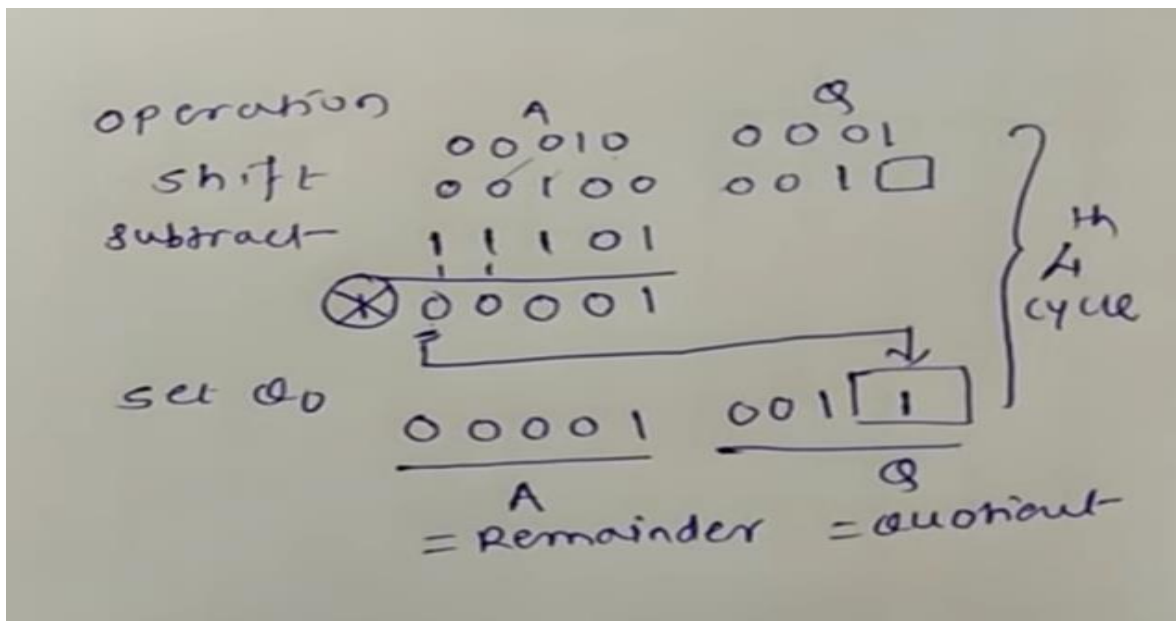 operation A Q
00010 0001
shift 00100 001
subtract 11101
1 1
1 00001
set Q0 00001 001 1
A Q
= Remainder = Quotient
4th
cycle